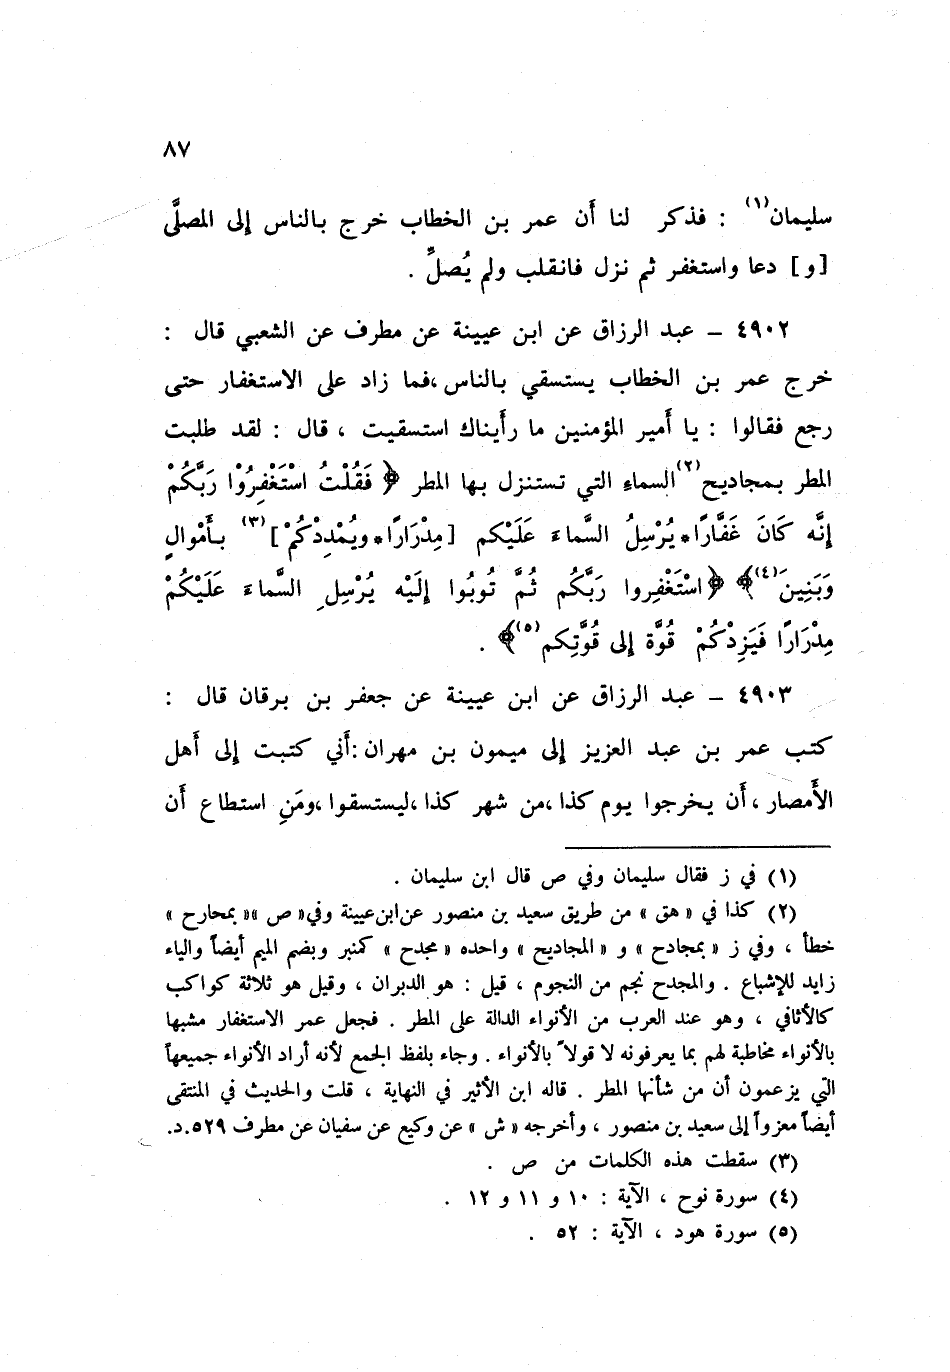 ٨٧
سليمان(١) : فذكر لنا أَن عمر بن الخطاب خرج بالناس إلى المصلَّى
[و] دعا واستغفر ثم نزل فانقلب ولم يُصلِّ .
٤٩٠٢ – عبد الرزاق عن ابن عيينة عن مطرف عن الشعبي قال :
خرج عمر بن الخطاب يستسقي بالناس ،فما زاد على الاستغفار حتى
رجع فقالوا : يا أَمير المؤمنين ما رأَيناك استسقيت ، قال : لقد طلبت
المطر بمجاديح(٢) السماءِ التي تستنزل بها المطر ﴿ فَقُلْتُ اسْتَغْفِرُوْا رَبَّكُمْ
إِنَّه كَانَ غَفَّارًا * يُرْسِلُ السَّماءَ عَلَيْكم [مِدْرَارًا * ويُمْدِدْكُمْ](٣) بِأَمْوالٍ
وَبَنِينَ(٤)﴾ ﴿اسْتَغْفِروا رَبَّكُم ثُمَّ تُوبُوا إِلَيْه يُرْسِلِ السَّماءَ عَلَيْكُمْ
مِدْرَارًا فَيَزِدْكُمْ قُوَّة إِلى قُوَّتِكم(٥)﴾ .
٤٩٠٣ – عبد الرزاق عن ابن عيينة عن جعفر بن برقان قال :
كتب عمر بن عبد العزيز إلى ميمون بن مهران :أَني كتبت إلى أَهل
الأَمصار ،أَن يخرجوا يوم كذا ،من شهر كذا ،ليستسقوا ،ومَنِ استطاع أَن
(١) في ز فقال سليمان وفي ص قال ابن سليمان .
(٢) كذا في « هق » من طريق سعيد بن منصور عن ابن عيينة وفي « ص » « بمحارح »
خطأ ، وفي ز « بمجادح » و « المجاديح » واحده « مجدح » كمنبر وبضم الميم أيضاً والياء
زايد للإشباع . والمجدح نجم من النجوم ، قيل : هو الدبران ، وقيل هو ثلاثة كواكب
كالأثافي ، وهو عند العرب من الأنواء الدالة على المطر . فجعل عمر الاستغفار مشبها
بالأنواء مخاطبة لهم بما يعرفونه لا قولاً بالأنواء . وجاء بلفظ الجمع لأنه أراد الأنواء جميعهاً
التي يزعمون أن من شأنها المطر . قاله ابن الأثير في النهاية ، قلت والحديث في المنتقى
أيضاً معزواً إلى سعيد بن منصور ، وأخرجه « ش » عن وكيع عن سفيان عن مطرف ٥٢٩.د.
(٣) سقطت هذه الكلمات من ص .
(٤) سورة نوح ، الآية : ١٠ و ١١ و ١٢ .
(٥) سورة هود ، الآية : ٥٢ .